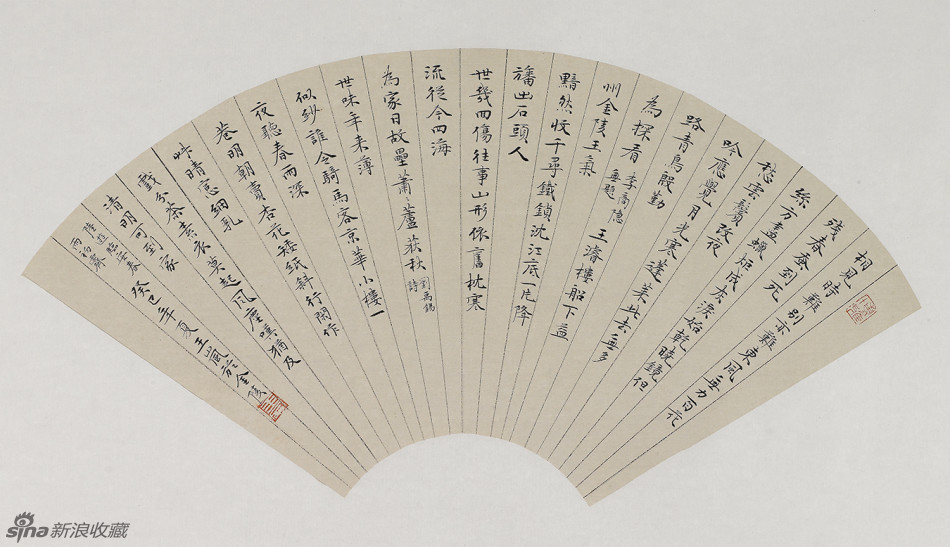 相見時難別亦難東風無力百花
殘春蚕到死
絲方盡蠟炬成灰淚始乾曉鏡但
愁雲鬢改夜
吟應覺月光寒蓬萊此去無多
路青鳥殷勤
為探看 李商隱 無題 王濬樓船下益
州金陵王氣
黯然收千尋鐵鎖沈江底一片降
旛出石頭人
世幾回傷往事山形依舊枕寒
流從今四海
為家日故壘蕭蘆荻秋 劉禹錫 詩
世味年来薄
似紗誰令騎馬客京華小樓一
夜聽春雨深
巷明朝賣杏花矮紙斜行閑作
艸晴窓細乳
戲分茶素衣莫起風塵嘆猶及
清明可到家
陸遊臨安春
雨初霽
癸巳年夏王嵐於金陵
sina新浪收藏